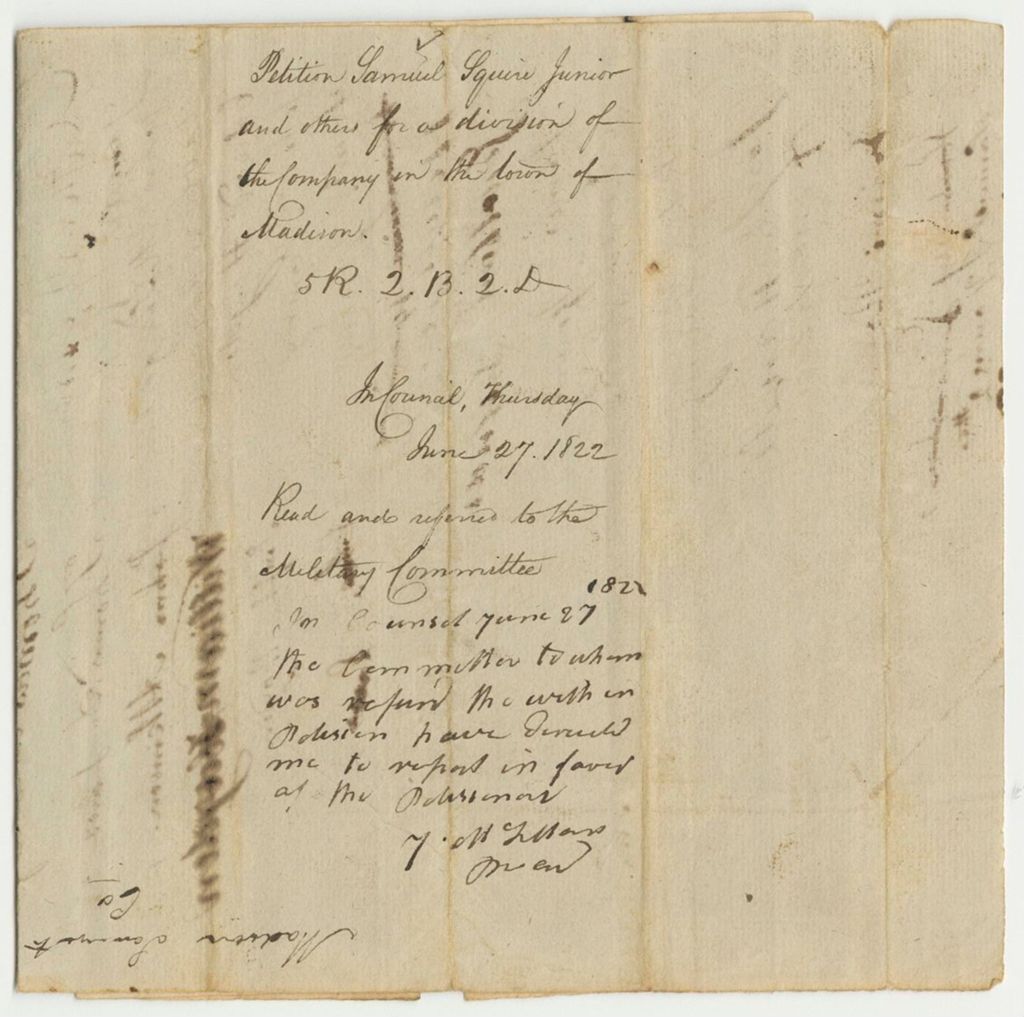 Petition Samuel Squire Junior
and others for a division of
the Company in the town of
Madison.
5 R. 2. B. 2. D
In Council, Thursday
June 27. 1822
Read and referred to the
Military Committee
1822
In Counsel June 27
the Committee to whom
was refurd the with in
Petision have
me to report in favor
of the Petissenors
Madison Somerset
Co